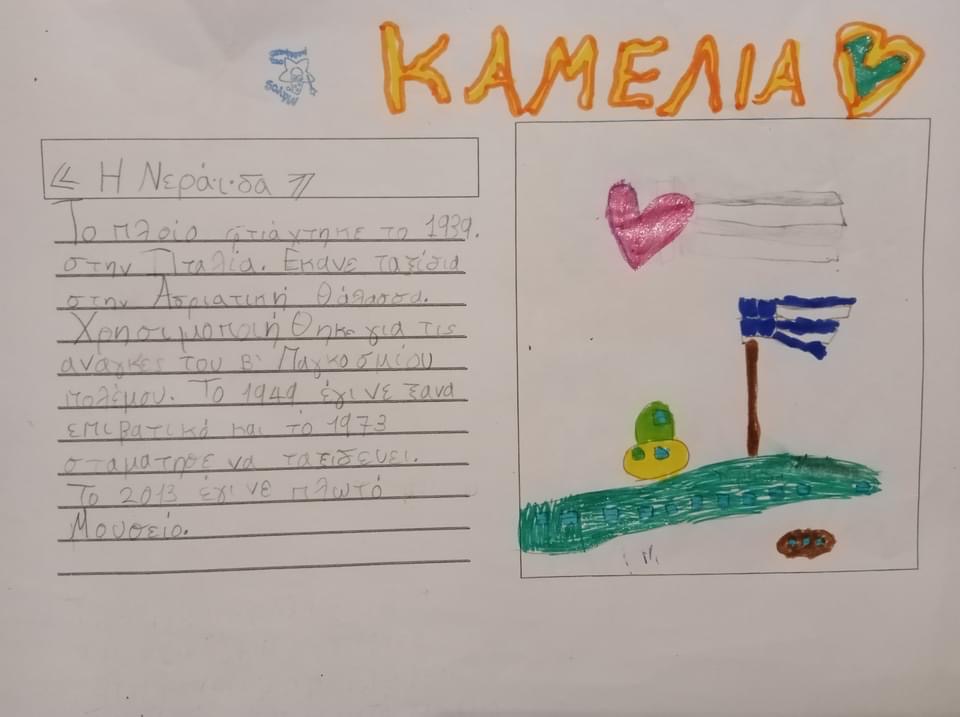 ΚΑΜΕΛΙΑ
« Η Νεράϊδα »
Το πλοίο φτιάχτηκε το 1939.
στην Ιταλία. Έκανε ταξίδια
στην Αδριατική θάλασσα.
Χρησιμοποιήθηκε για τις
ανάγκες του Β' Παγκοσμίου
πολέμου. Το 1949 έγινε ξανα
επιβατικό και το 1973
σταμάτησε να ταξιδεύει.
Το 2013 έγινε πλωτό
Μουσείο.